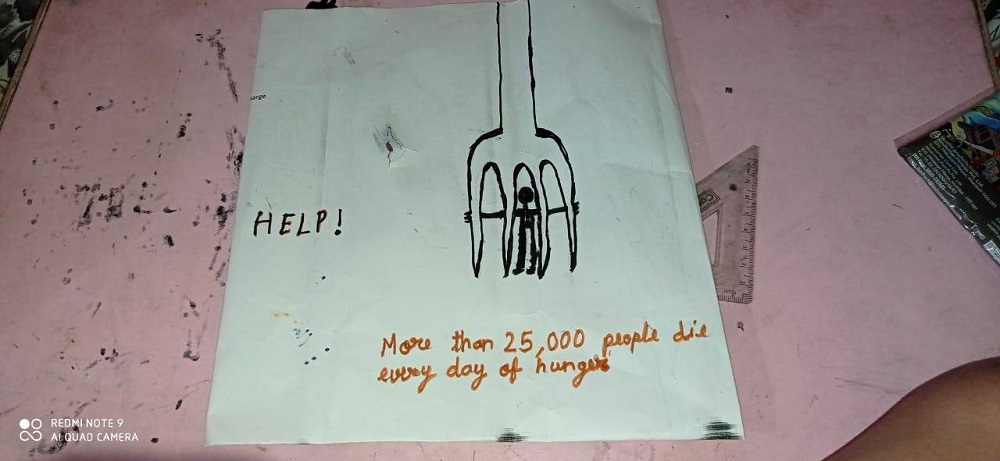 arge
HELP!
More than 25,000 people die
every day of hunger
REDMI NOTE 9
AI QUAD CAMERA